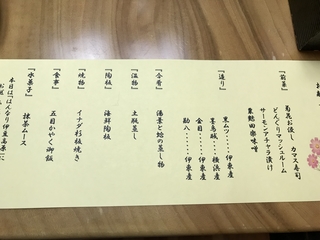 『前菜』
菊花お浸し カマス寿司
どんぐりマッシュルーム
サーモンアチャラ漬け
『造り』
黒ムツ・・・・伊東産
墨烏賊・・・・横浜産
金目・・・・・伊東産
勘八・・・・・伊東産
『合肴』
湯葉と蛤の蒸し物
『温物』
土瓶蒸し
『陶板』
海鮮陶板
『焼物』
イナダ杉板焼き
『食事』
五目かやく御飯
『水菓子』
抹茶ムース
本日は『はんなり伊豆高原』に